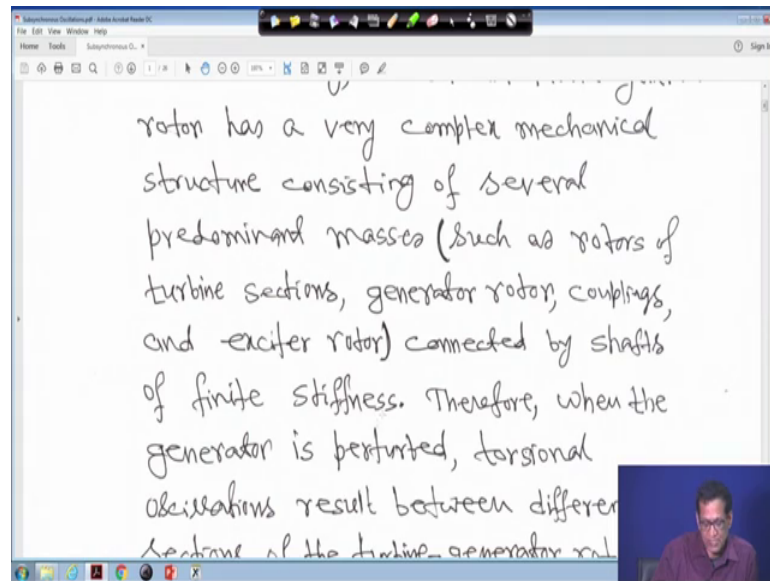 Subsynchronous Oscillations.pdf - Adobe Acrobat Reader DC
File Edit View Window Help
Home Tools Subsynchronous O... ×
Sign In
1 / 28
rotor has a very complex mechanical
structure consisting of several
predominant masses (such as rotors of
turbine sections, generator rotor, couplings,
and exciter rotor) connected by shafts
of finite stiffness. Therefore, when the
generator is perturbed, torsional
oscillations result between differen
sections of the turbine-generator rot